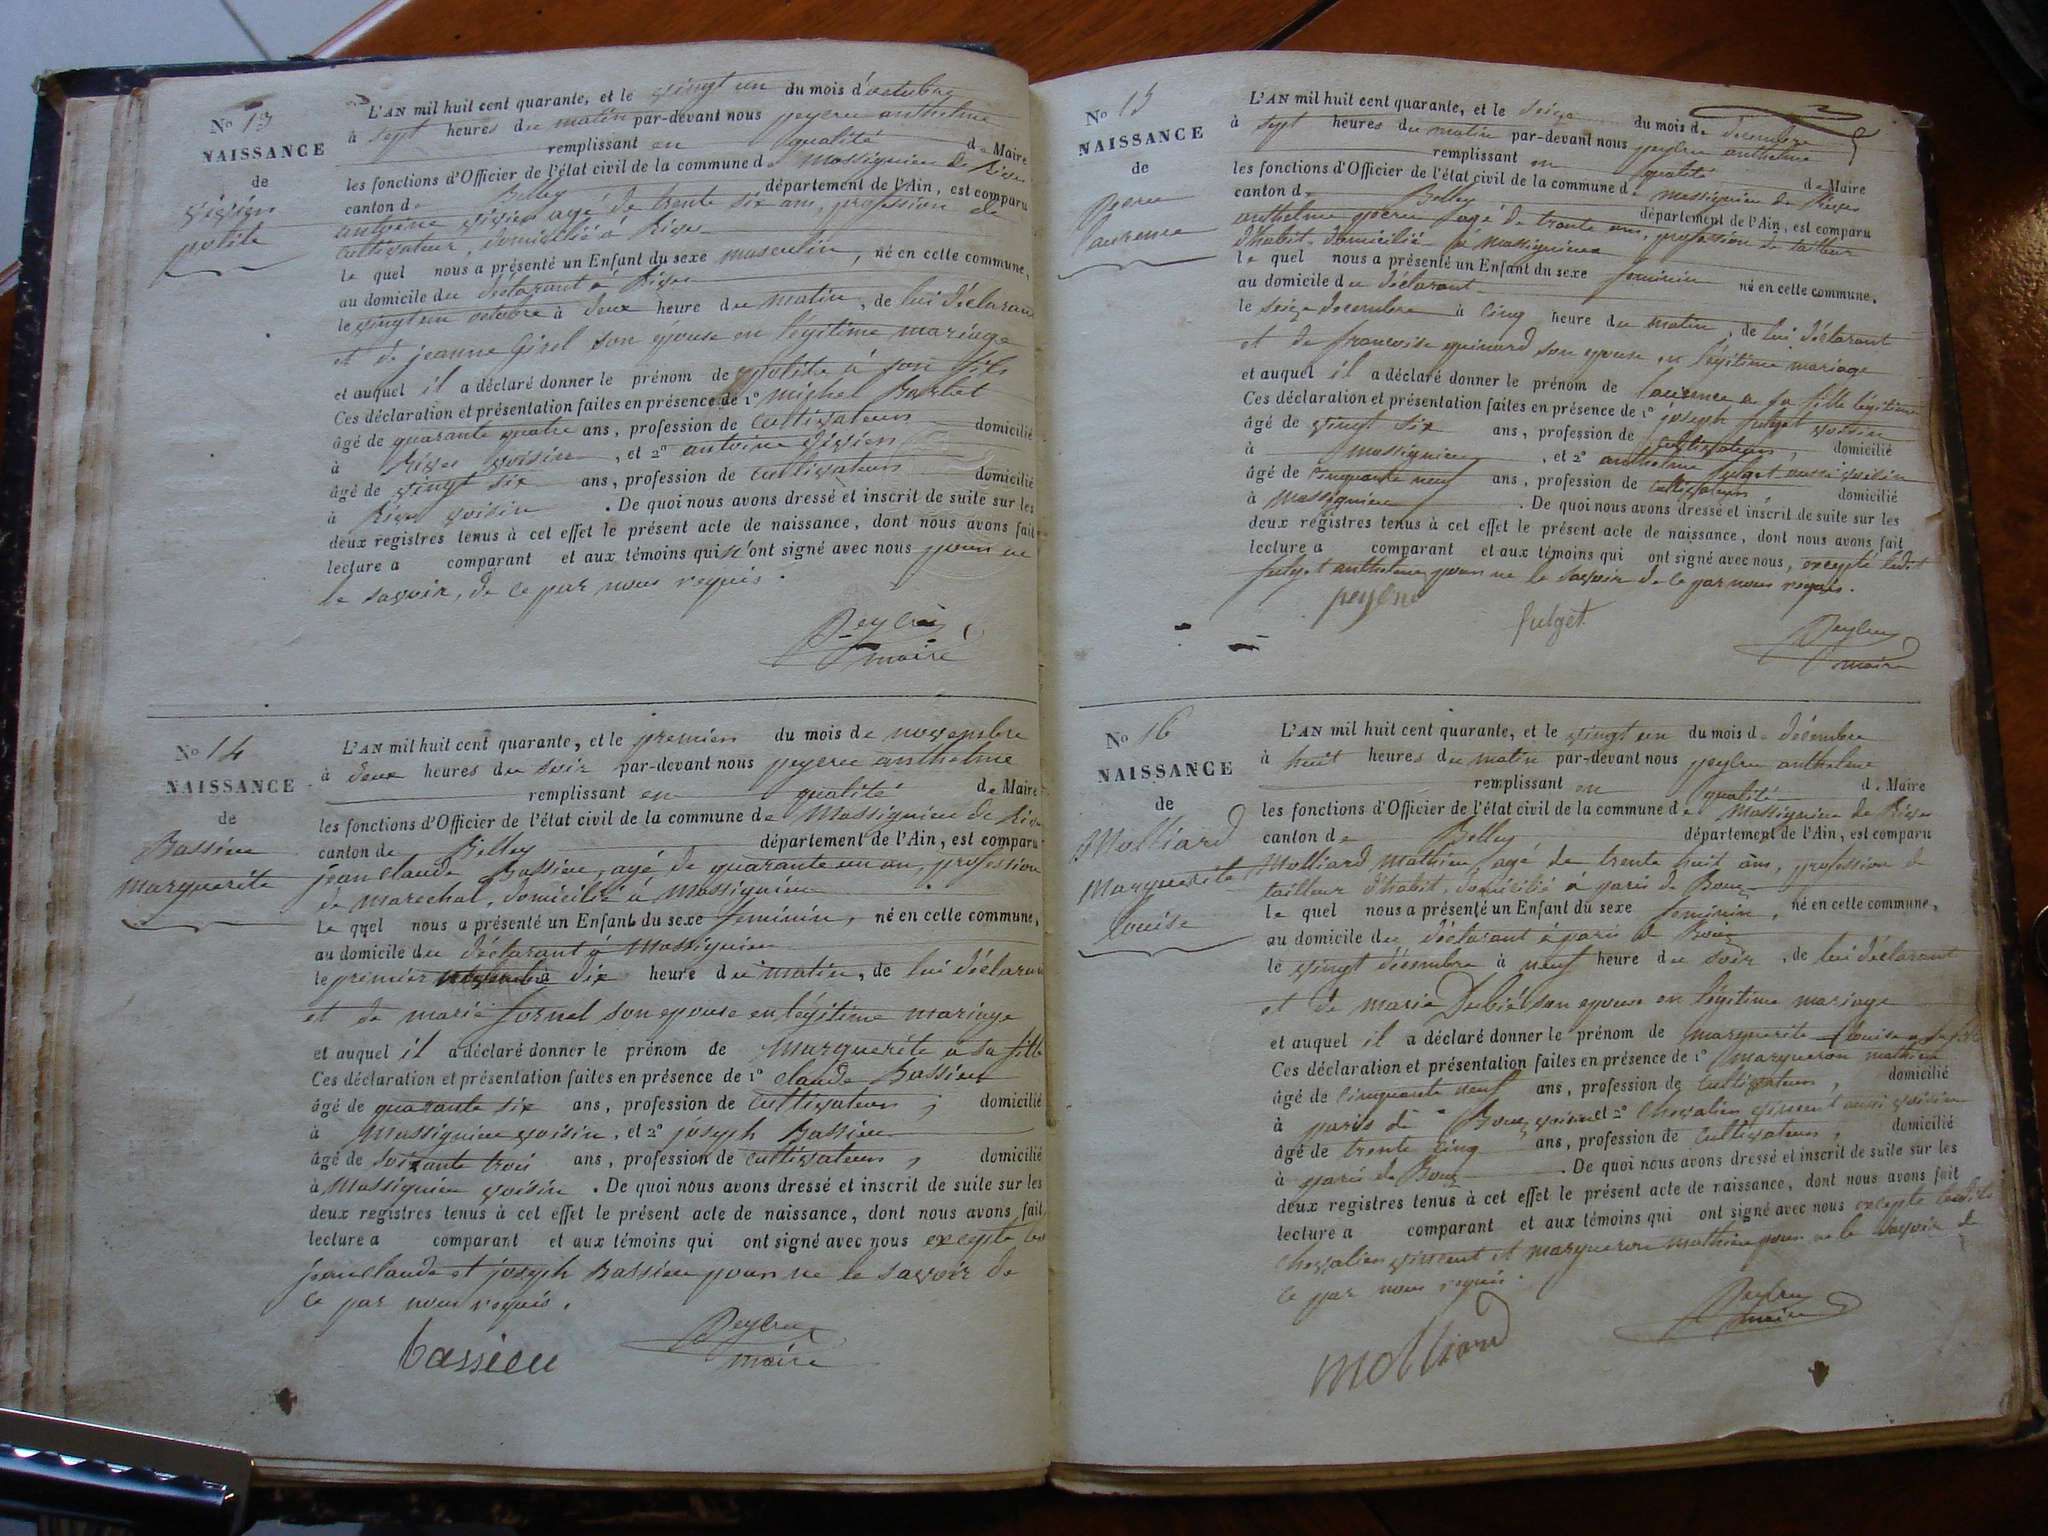 N° 13
NAISSANCE
de
polite
L'AN mil huit cent quarante, et le vingt un du mois d'octobre
à sept heures du matin par-devant nous peyeru anthelme
remplissant en qualité de Maire
les fonctions d'Officier de l'état civil de la commune de Massignieu de Rives
canton de Belley département de l'Ain, est comparu
antoine agé de trente six ans, profession de
cultivateur, domicilié à Rives
le quel nous a présenté un Enfant du sexe masculin, né en cette commune,
au domicile du déclarant à Rives
le vingt un octobre à deux heure du matin, de lui déclarant
et de jeanne Girel son épouse en légitime mariage
et auquel il a déclaré donner le prénom de polite à son fils
Ces déclaration et présentation faites en présence de 1° michel
âgé de quarante quatre ans, profession de cultivateur domicilié
à Rives voisin, et 2° antoine
âgé de vingt six ans, profession de cultivateur domicilié
à Rives voisin. De quoi nous avons dressé et inscrit de suite sur les
deux registres tenus à cet effet le présent acte de naissance, dont nous avons fait
lecture a comparant et aux témoins qui n'ont signé avec nous pour ne
le savoir, de ce par nous requis.
maire
N° 14
NAISSANCE
de
Bassieu
marguerite
L'AN mil huit cent quarante, et le premier du mois de novembre
à deux heures du soir par-devant nous peyeru anthelme
remplissant en qualité de Maire
les fonctions d'Officier de l'état civil de la commune de Massignieu de Rives
canton de Belley département de l'Ain, est comparu
jean claude Bassieu, agé de quarante un an, profession
de marechal, domicilié à Massignieu
le quel nous a présenté un Enfant du sexe feminin, né en cette commune,
au domicile du déclarant à Massignieu
le premier novembre à dix heure du matin, de lui déclarant
et de marie fornel son epouse en légitime mariage
et auquel il a déclaré donner le prénom de marguerite a sa fille
Ces déclaration et présentation faites en présence de 1° claude Bassieu
âgé de quarante six ans, profession de cultivateur, domicilié
à Massignieu voisin, et 2° joseph Bassieu
âgé de soixante trois ans, profession de cultivateur, domicilié
à Massignieu voisin. De quoi nous avons dressé et inscrit de suite sur les
deux registres tenus à cet effet le présent acte de naissance, dont nous avons fait
lecture a comparant et aux témoins qui ont signé avec nous excepté les
jean claude et joseph Bassieu pour ne le savoir de
ce par nous requis.
bassieu
maire
N° 15
NAISSANCE
de
laurence
L'AN mil huit cent quarante, et le seize du mois de decembre
à sept heures du matin par-devant nous peyeru anthelme
remplissant en qualité de Maire
les fonctions d'Officier de l'état civil de la commune de massignieu de Rives
canton de Belley département de l'Ain, est comparu
anthelme agé de trente ans, profession de tailleur
d'habit, domicilié à Massignieu
le quel nous a présenté un Enfant du sexe feminin né en cette commune,
au domicile du déclarant
le seize decembre à cinq heure du matin, de lui déclarant
et de francoise son epouse en légitime mariage
et auquel il a déclaré donner le prénom de laurence a sa fille légitime
Ces déclaration et présentation faites en présence de 1° joseph fulget voisin
âgé de vingt six ans, profession de cultivateur, domicilié
à massignieu, et 2° anthelme fulget aussi voisin
âgé de cinquante neuf ans, profession de cultivateur domicilié
à Massignieu. De quoi nous avons dressé et inscrit de suite sur les
deux registres tenus à cet effet le présent acte de naissance, dont nous avons fait
lecture a comparant et aux témoins qui ont signé avec nous, excepté ledit
fulget anthelme pour ne le savoir de ce par nous requis.
fulget
maire
N° 16
NAISSANCE
de
Molliard
Marguerite
louise
L'AN mil huit cent quarante, et le vingt un du mois de décembre
à huit heures du matin par-devant nous peyeru anthelme
remplissant en qualité de Maire
les fonctions d'Officier de l'état civil de la commune de Massignieu de Rives
canton de Belley département de l'Ain, est comparu
Molliard mathieu, agé de trente huit ans, profession de
tailleur d'habit, domicilié à
le quel nous a présenté un Enfant du sexe feminin, né en cette commune,
au domicile du déclarant à
le vingt décembre à neuf heure du soir, de lui déclarant
et de marie son epouse en légitime mariage
et auquel il a déclaré donner le prénom de marguerite louise a sa fille
Ces déclaration et présentation faites en présence de 1° margueron mathieu
âgé de cinquante neuf ans, profession de cultivateur, domicilié
à voisin et 2° chevalier vincent aussi voisin
âgé de trente cinq ans, profession de cultivateur, domicilié
à De quoi nous avons dressé et inscrit de suite sur les
deux registres tenus à cet effet le présent acte de naissance, dont nous avons fait
lecture a comparant et aux témoins qui ont signé avec nous excepté lesdits
chevalier vincent et margueron mathieu pour ne le savoir de
ce par nous requis.
maire
molliard